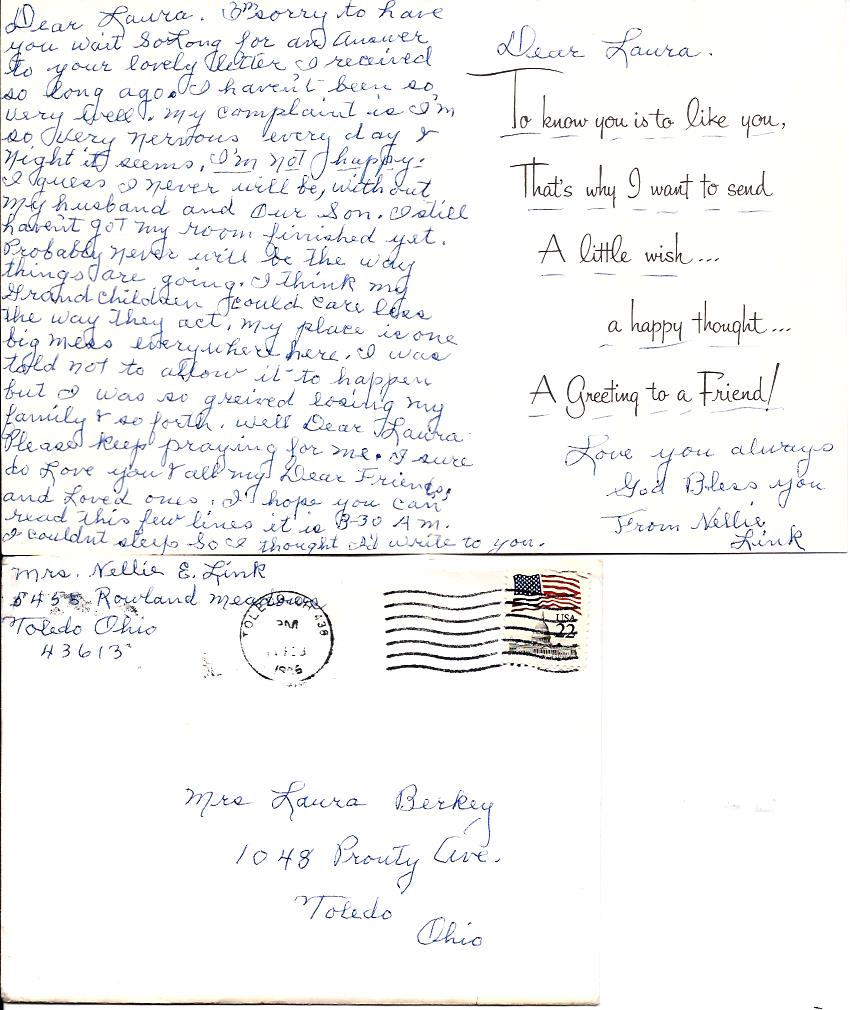 Dear Laura. I'm sorry to have
you wait so Long for an answer
to your lovely letter I received
so long ago. I haven't been so
very well. my complaint is I'm
so very nervous every day &
night it seems. I'm not happy.
I guess I never will be, without
my husband and our Son. I still
haven't got my room finished yet.
Probably never will be the way
things are going. I think my
Grandchildren could care less
the way they act. my place is one
big mess everywhere here. I was
told not to allow it to happen
but I was so greived losing my
family & so forth. Well Dear Laura
Please keep praying for me. I sure
do Love you & all my Dear Friends,
and Loved ones. I hope you can
read this few lines it is 3-30 A M.
I couldnt sleep so I thought I'd write to you.
Dear Laura.
To know you is to like you,
That's why I want to send
A little wish...
a happy thought...
A Greeting to a Friend!
Love you always
God Bless you
From Nellie
Link
Mrs. Nellie E. Link
5455 Rowland
Toledo Ohio
43613
TOLEDO, OH 436
PM
USA
22
Mrs Laura Berkey
1048 Prouty Ave.
Toledo
Ohio